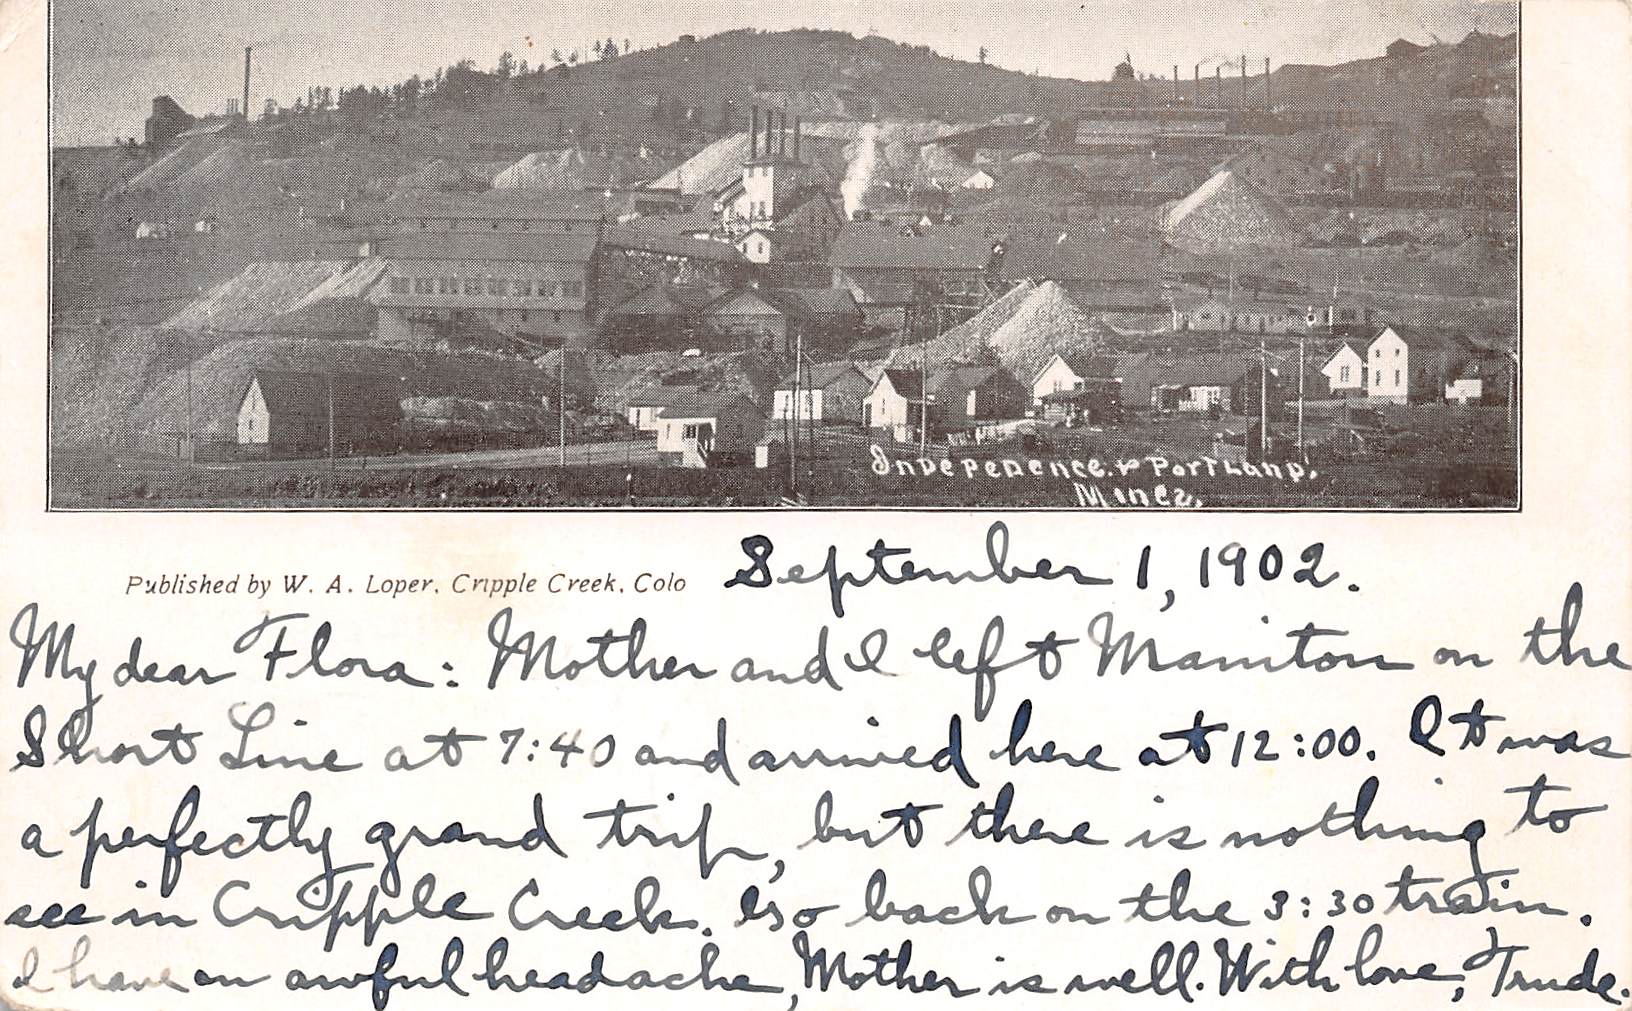 Independence & Portland.
Mines.
Published by W. A. Loper, Cripple Creek, Colo
September 1, 1902.
My dear Flora: Mother and I left Manitou on the
Short Line at 7:40 and arrived here at 12:00. It was
a perfectly grand trip, but there is nothing to
see in Cripple Creek. Go back on the 3:30 train.
I have an awful headache, Mother is well. With love, Trude.